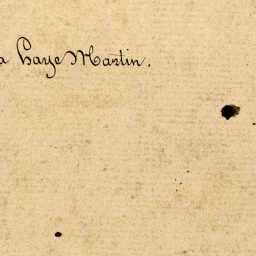 a haye Martin.